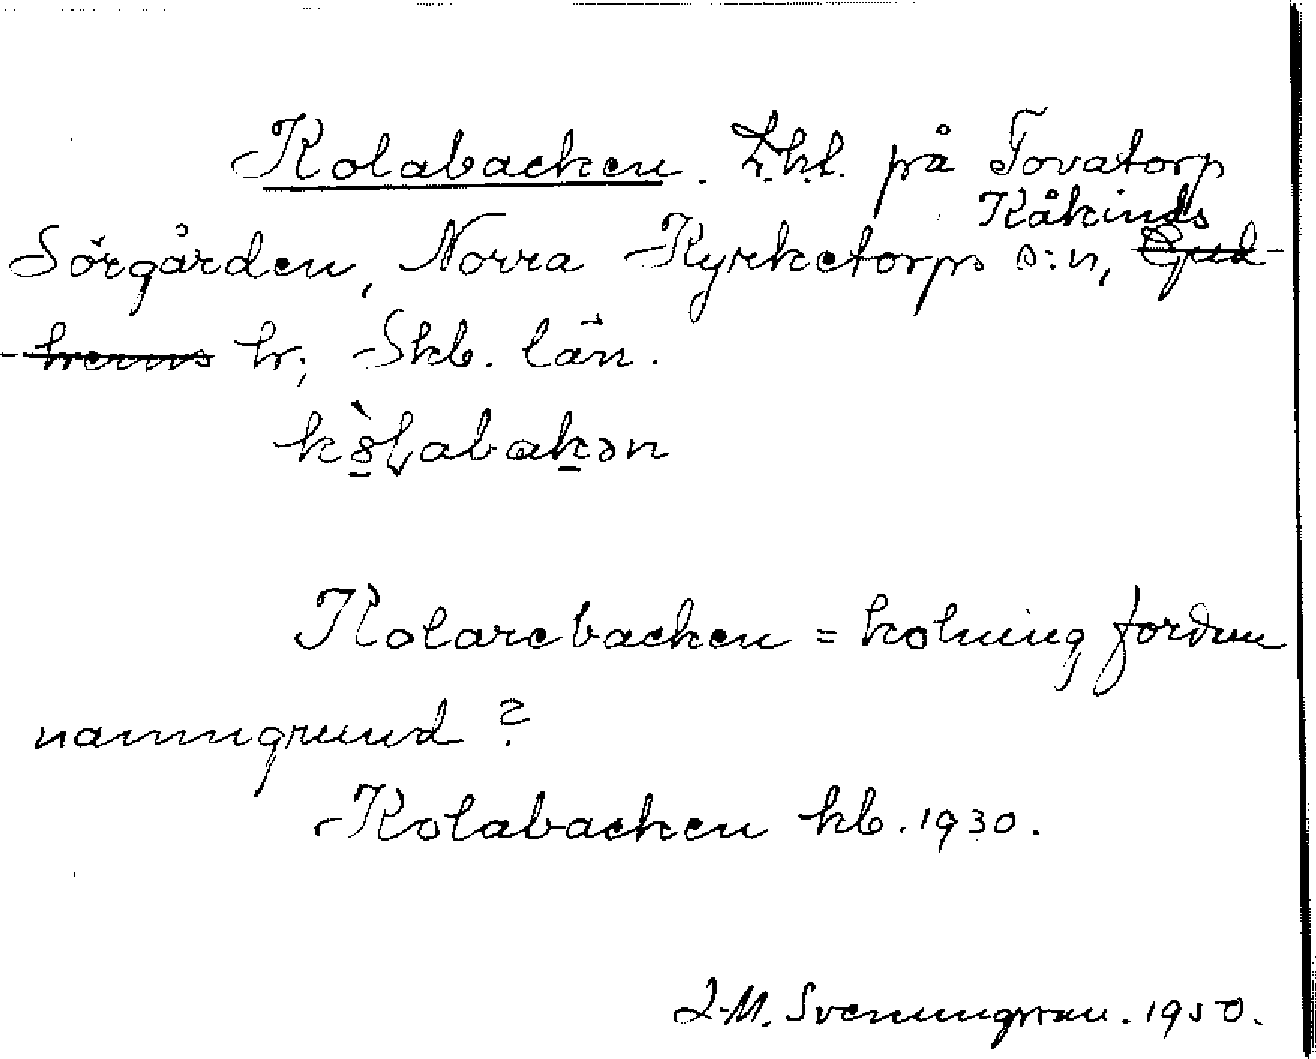 Kolabacken. L.h.l. på Tovatorp
Sörgården, Norra Kyrketorps s:n, Kåkinds ~~Gud-~~
~~hems~~ hr, Skb. län.
Kolarebacken = kolning fordom
namngrund?
Kolabacken kb. 1930.
Svenungsson. 1950.